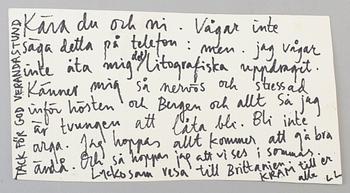 TACK FÖR GOD VERANDASTUND
Kära du och ni. Vågar inte
säga detta på telefon: men. jag vågar
inte åta mig det litografiska uppdraget.
Känner mig så nervös och stressad
inför hösten och Bergen och allt så jag
är tvungen att låta bli. Bli inte
arga. Jag hoppas allt kommer att gå bra
ändå. Och så hoppas jag att vi ses i sommar.
Lyckosam resa till Brittanien till er
KRAM alle LL